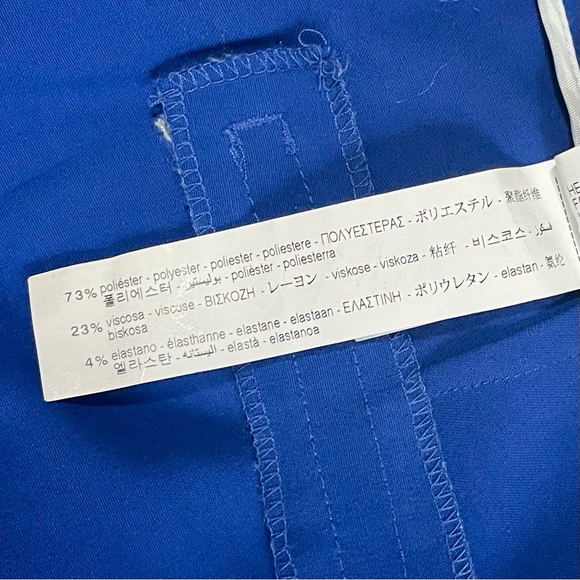 73% poliéster - polyester - poliester - poliestere - ΠΟΛΥΕΣΤΕΡΑΣ - ポリエステル - 聚酯纤维
폴리에스터 - بوليستير - polièster - poliesterra
23% viscosa - viscose - ΒΙΣΚΟΖΗ - レーヨン - viskose - viskoza - 粘纤 - 비스코스 -
biskosa
4% elastano - élasthanne - elastane - elastaan - ΕΛΑΣΤΙΝΗ - ポリウレタン - elastan - 氨纶
엘라스탄 - اليستانه - elastà - elastanoa